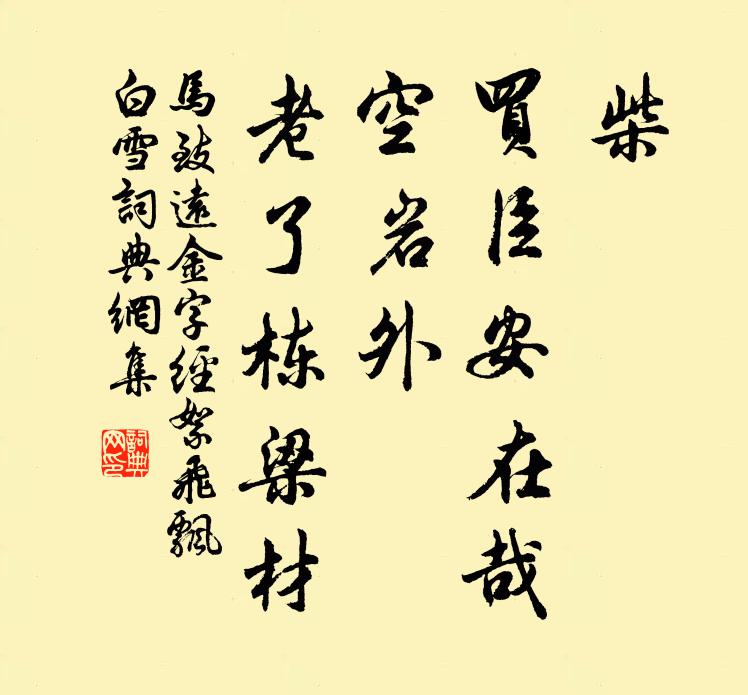 柴
買臣安在哉
空岩外
老了栋梁材
馬致遠金字經絮飛飄
白雪詞典網集
詞典
网印